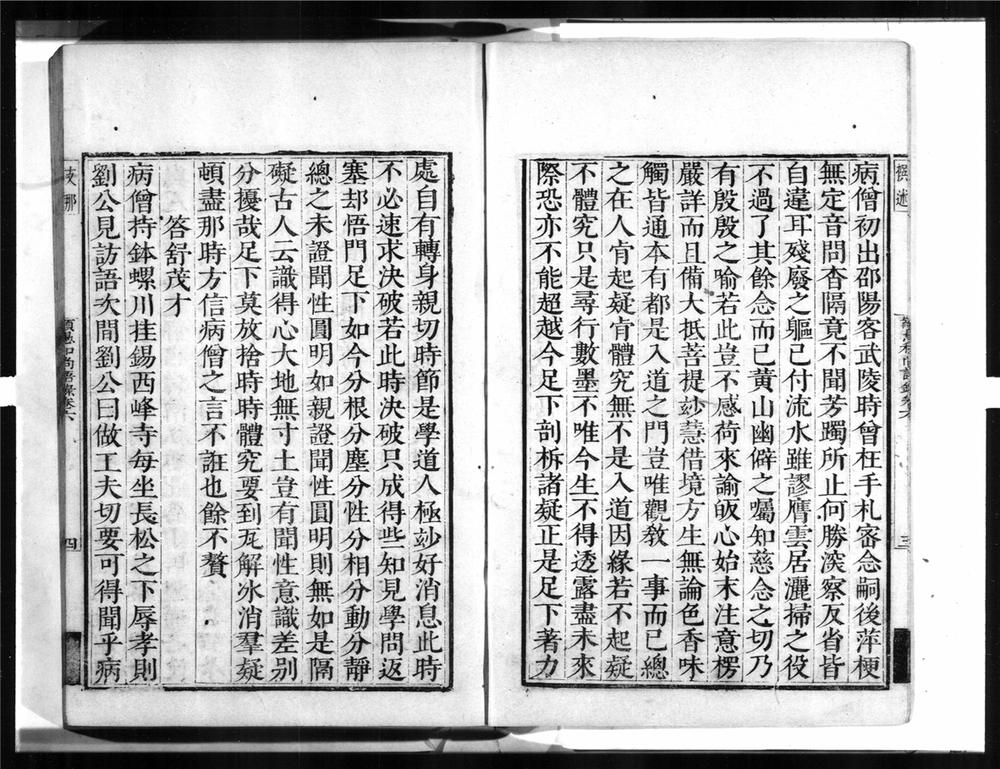 病僧初出邵陽客武陵時曾枉手札審念嗣後萍梗
無定音問杳隔竟不聞芳躅所止何勝深察反省皆
自違耳殘廢之軀已付流水雖謬膺雲居灑掃之役
不過了其餘念而已黃山幽僻之囑知慈念之切乃
有殷殷之喻若此豈不感荷來諭皈心始末注意楞
嚴詳而且備大抵菩提玅慧借境方生無論色香味
觸皆通本有都是入道之門豈唯觀教一事而已總
之在人肯起疑肯體究無不是入道因緣若不起疑
不體究只是尋行數墨不唯今生不得透露盡未來
際恐亦不能超越今足下剖柝諸疑正是足下著力
處自有轉身親切時節是學道人極玅好消息此時
不必速求決破若此時決破只成得些知見學問返
塞却悟門足下如今分根分塵分性分相分動分靜
總之未證聞性圓明如親證聞性圓明則無如是隔
礙古人云識得心大地無寸土豈有聞性意識差別
分擾哉足下莫放捨時時體究要到瓦解冰消羣疑
頓盡那時方信病僧之言不誑也餘不贅
答舒茂才
病僧持鉢螺川挂錫西峰寺每坐長松之下辱孝則
劉公見訪語次間劉公曰做工夫切要可得聞乎病
撰述
三
支那
四